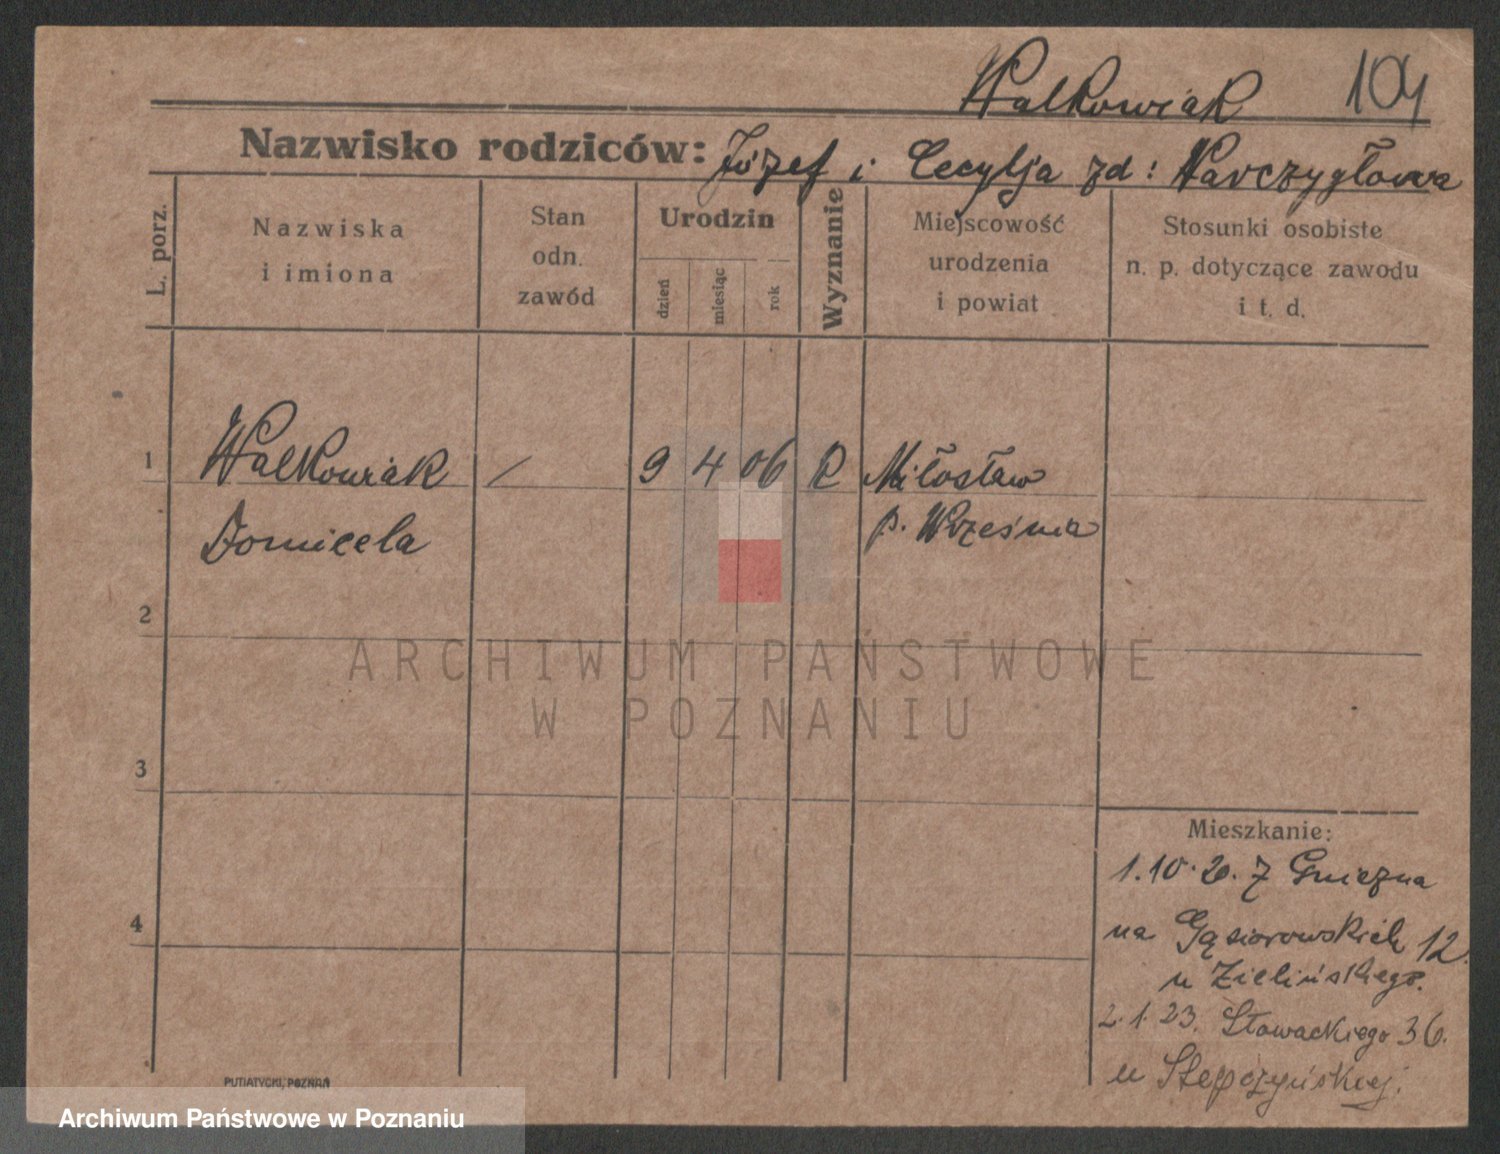 Walkowiak 104
Nazwisko rodziców: Józef i Cecylja zd: Narczygłowa
L. porz.
Nazwiska
i imiona
Stan
odn.
zawód
Urodzin
dzień
miesiąc
rok
Wyznanie
Miejscowość
urodzenia
i powiat
Stosunki osobiste
n. p. dotyczące zawodu
i t. d.
1 Walkowiak / 9 4 06 R Miłosław
Domicela p. Września
2
3
4
ARCHIWUM PAŃSTWOWE
W POZNANIU
Mieszkanie:
1.10.20. z Gniezna
na Gąsiorowskich 12.
u Zielińskiego.
2.1.23. Słowackiego 36.
u Stępczyńskiej.
PUTIATYCKI, POZNAŃ
Archiwum Państwowe w Poznaniu